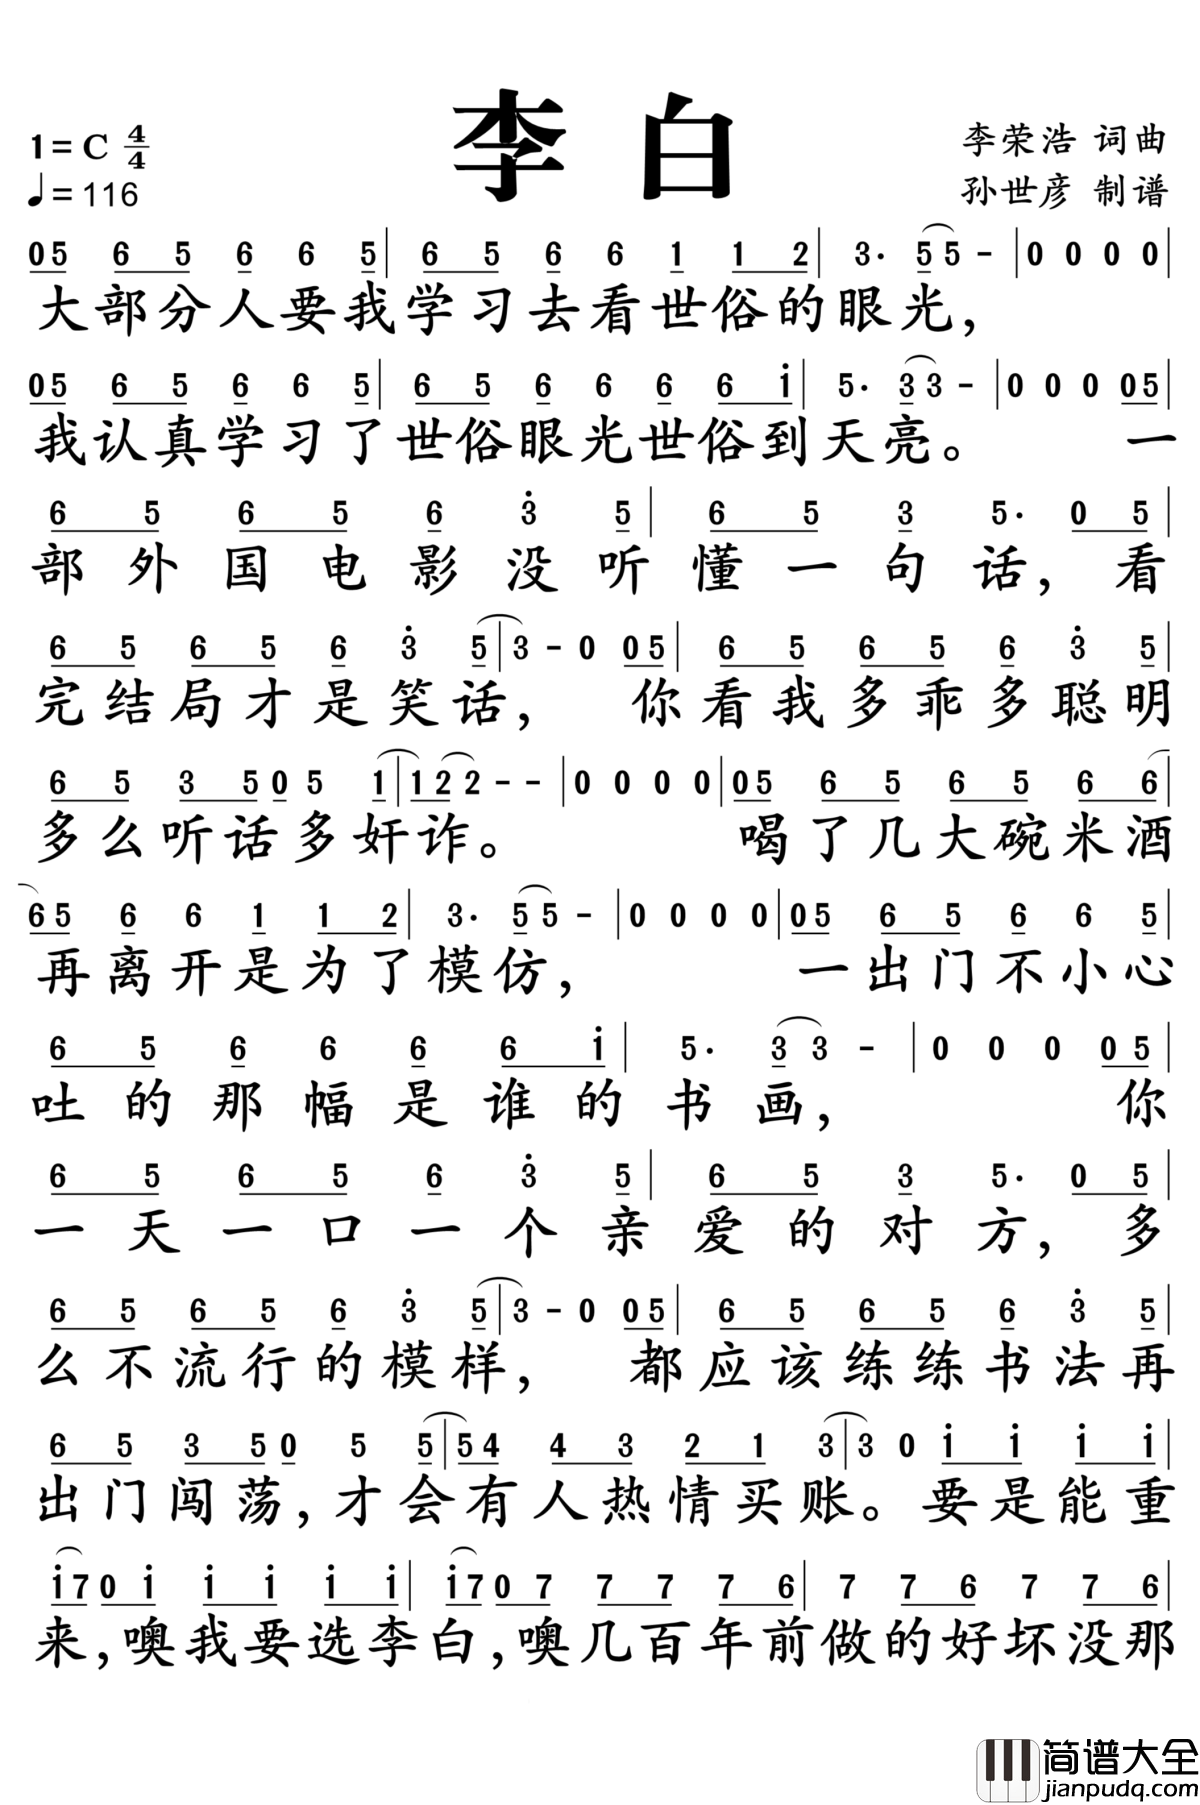 李白
1=C 4/4
♩=116
李荣浩 词曲
孙世彦 制谱
05 6 5 6 6 5 | 6 5 6 6 1 1 2 | 3· 55 - | 0 0 0 0 |
大部分人要我学习去看世俗的眼光，
05 6 5 6 6 5 | 6 5 6 6 6 6 i | 5· 33 - | 0 0 0 05 |
我认真学习了世俗眼光世俗到天亮。 一
6 5 6 5 6 3̇ 5 | 6 5 3 5· 0 5 |
部外国电影没听懂一句话，看
6 5 6 5 6 3̇ 5 | 3 - 0 05 | 6 5 6 5 6 3̇ 5 |
完结局才是笑话， 你看我多乖多聪明
6 5 3 50 5 1 | 12 2 - - | 0 0 0 0 | 05 6 5 6 5 6 6 |
多么听话多奸诈。 喝了几大碗米酒
65 6 6 1 1 2 | 3· 55 - | 0 0 0 0 | 05 6 5 6 6 5 |
再离开是为了模仿， 一出门不小心
6 5 6 6 6 6 i | 5· 3 3 - | 0 0 0 0 5 |
吐的那幅是谁的书画， 你
6 5 6 5 6 3̇ 5 | 6 5 3 5· 0 5 |
一天一口一个亲爱的对方，多
6 5 6 5 6 3̇ 5 | 3 - 0 05 | 6 5 6 5 6 3̇ 5 |
么不流行的模样， 都应该练练书法再
6 5 3 50 5 5 | 54 4 3 2 1 3 | 3 0 i i i i |
出门闯荡，才会有人热情买账。要是能重
i7 0 i i i i i | i7 0 7 7 7 7 6 | 7 7 6 7 7 6 |
来，噢我要选李白，噢几百年前做的好坏没那
简谱大全
jianpudq.com